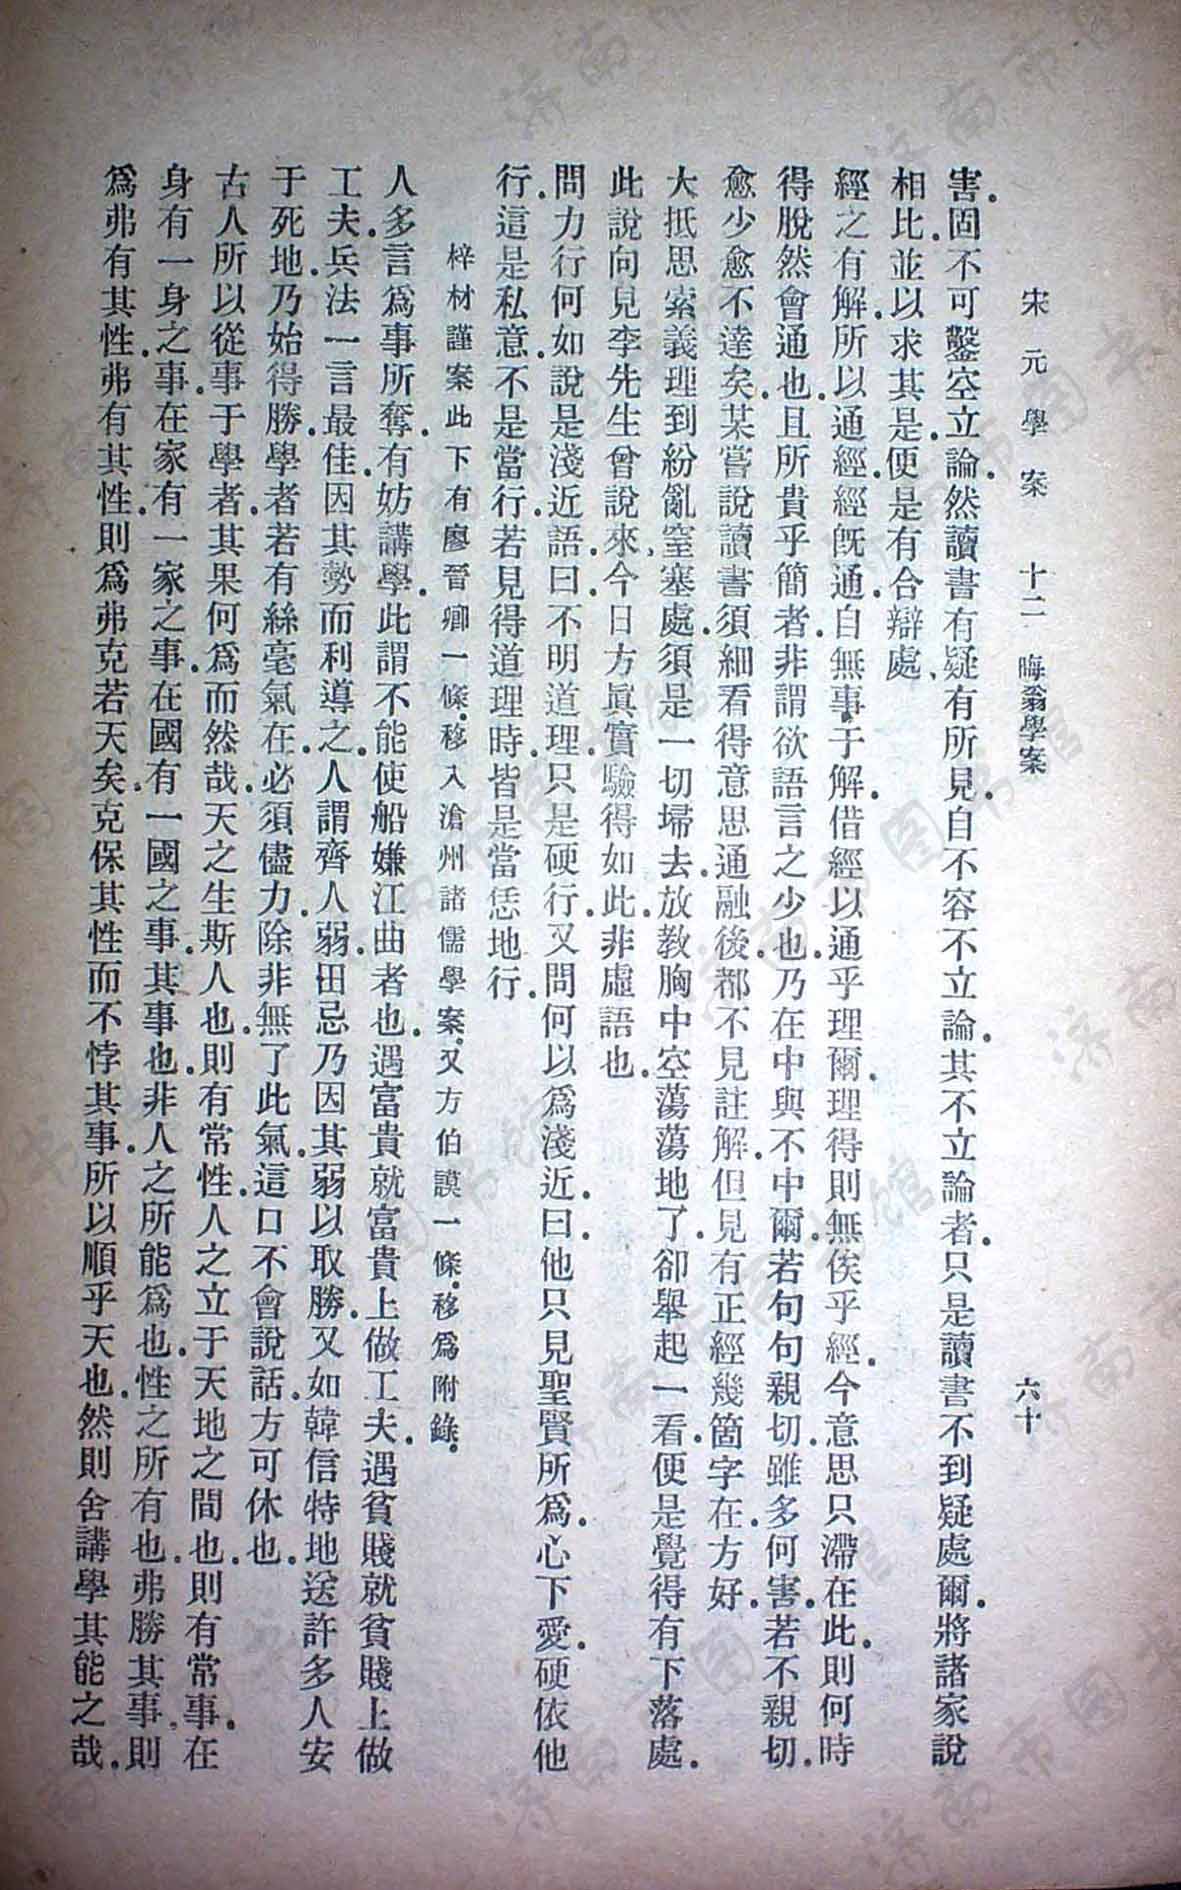 宋元學案 十二 晦翁學案 六十
害.固不可鑿空立論.然讀書有疑.有所見.自不容不立論.其不立論者.只是讀書不到疑處爾.將諸家說
相比並.以求其是.便是有合辯處.
經之有解.所以通經.經旣通.自無事于解.借經以通乎理爾.理得則無俟乎經.今意思只滯在此.則何時
得脫然會通也.且所貴乎簡者.非謂欲語言之少也.乃在中與不中爾.若句句親切.雖多何害.若不親切.
愈少愈不達矣.某嘗說讀書須細看得意思通融後.都不見註解.但見有正經幾箇字在.方好.
大抵思索義理.到紛亂窒塞處.須是一切埽去.放敎胸中空蕩蕩地了.卻舉起一看.便是覺得有下落處.
此說向見李先生曾說來.今日方眞實驗得如此.非虛語也.
問力行何如說是淺近語.曰.不明道理.只是硬行.又問何以爲淺近.曰.他只見聖賢所爲.心下愛.硬依他
行.這是私意.不是當行.若見得道理時.皆是當恁地行.
梓材謹案此下有廖晉卿一條.移入滄州諸儒學案.又方伯謨一條.移爲附錄.
人多言爲事所奪.有妨講學.此謂不能使船嫌江曲者也.遇富貴就富貴上做工夫.遇貧賤就貧賤上做
工夫.兵法一言最佳.因其勢而利導之.人謂齊人弱.田忌乃因其弱以取勝.又如韓信特地送許多人安
于死地.乃始得勝.學者若有絲毫氣在.必須儘力.除非無了此氣.這口不會說話.方可休也.
古人所以從事于學者.其果何爲而然哉.天之生斯人也.則有常性.人之立于天地之間也.則有常事.在
身有一身之事.在家有一家之事.在國有一國之事.其事也.非人之所能爲也.性之所有也.弗勝其事.則
爲弗有其性.弗有其性.則爲弗克若天矣.克保其性而不悖其事.所以順乎天也.然則舍講學其能之哉.